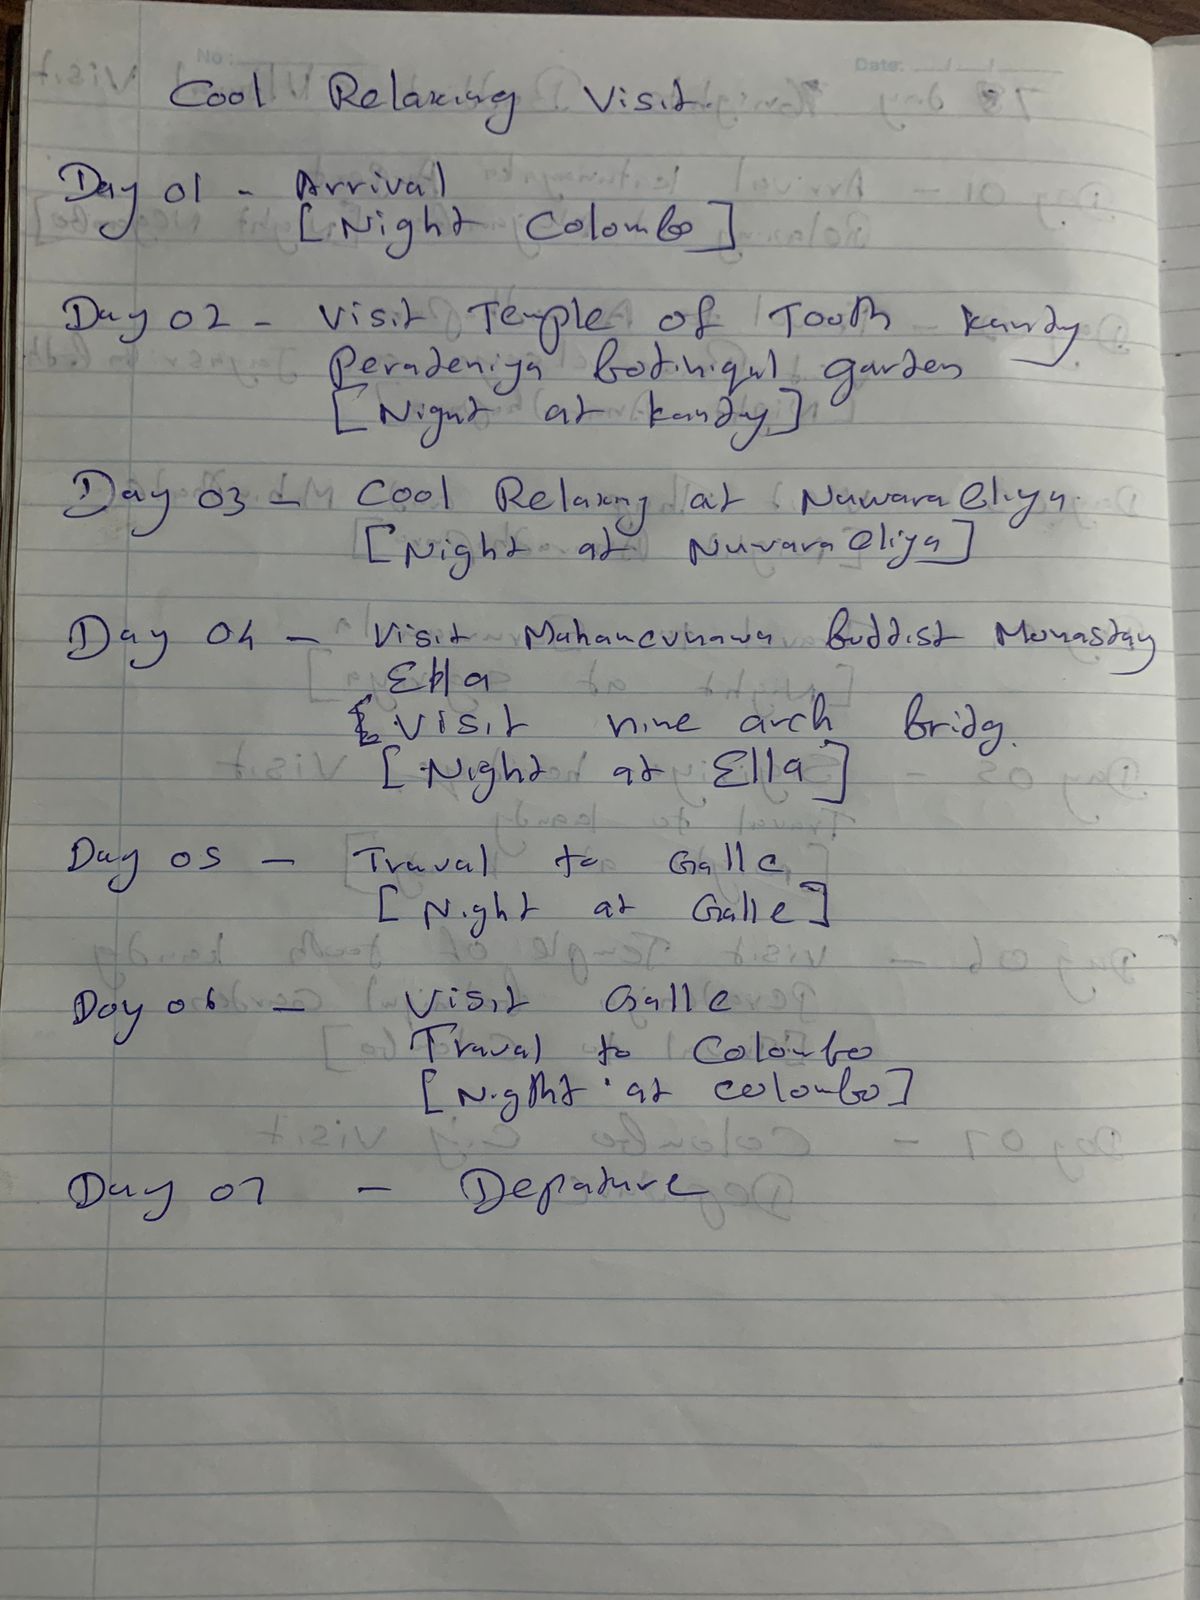 No:
Date:
Cool Relaxing Visit.
Day 01 - Arrival
[Night Colombo]
Day 02 - Visit Temple of Tooth kandy
Peradeniya botiniqul garden
[Night at kandy]
Day 03 - Cool Relaxing at Nuwara Eliya.
[Night at Nuwara Eliya]
Day 04 - Visit Mahamevnawa Buddist Monastay
Ella
Visit nine arch bridg.
[Night at Ella]
Day 05 - Traval to Galle
[Night at Galle]
Day 06 - Visit Galle
Traval to Colombo
[Night at colombo]
Day 07 - Depature